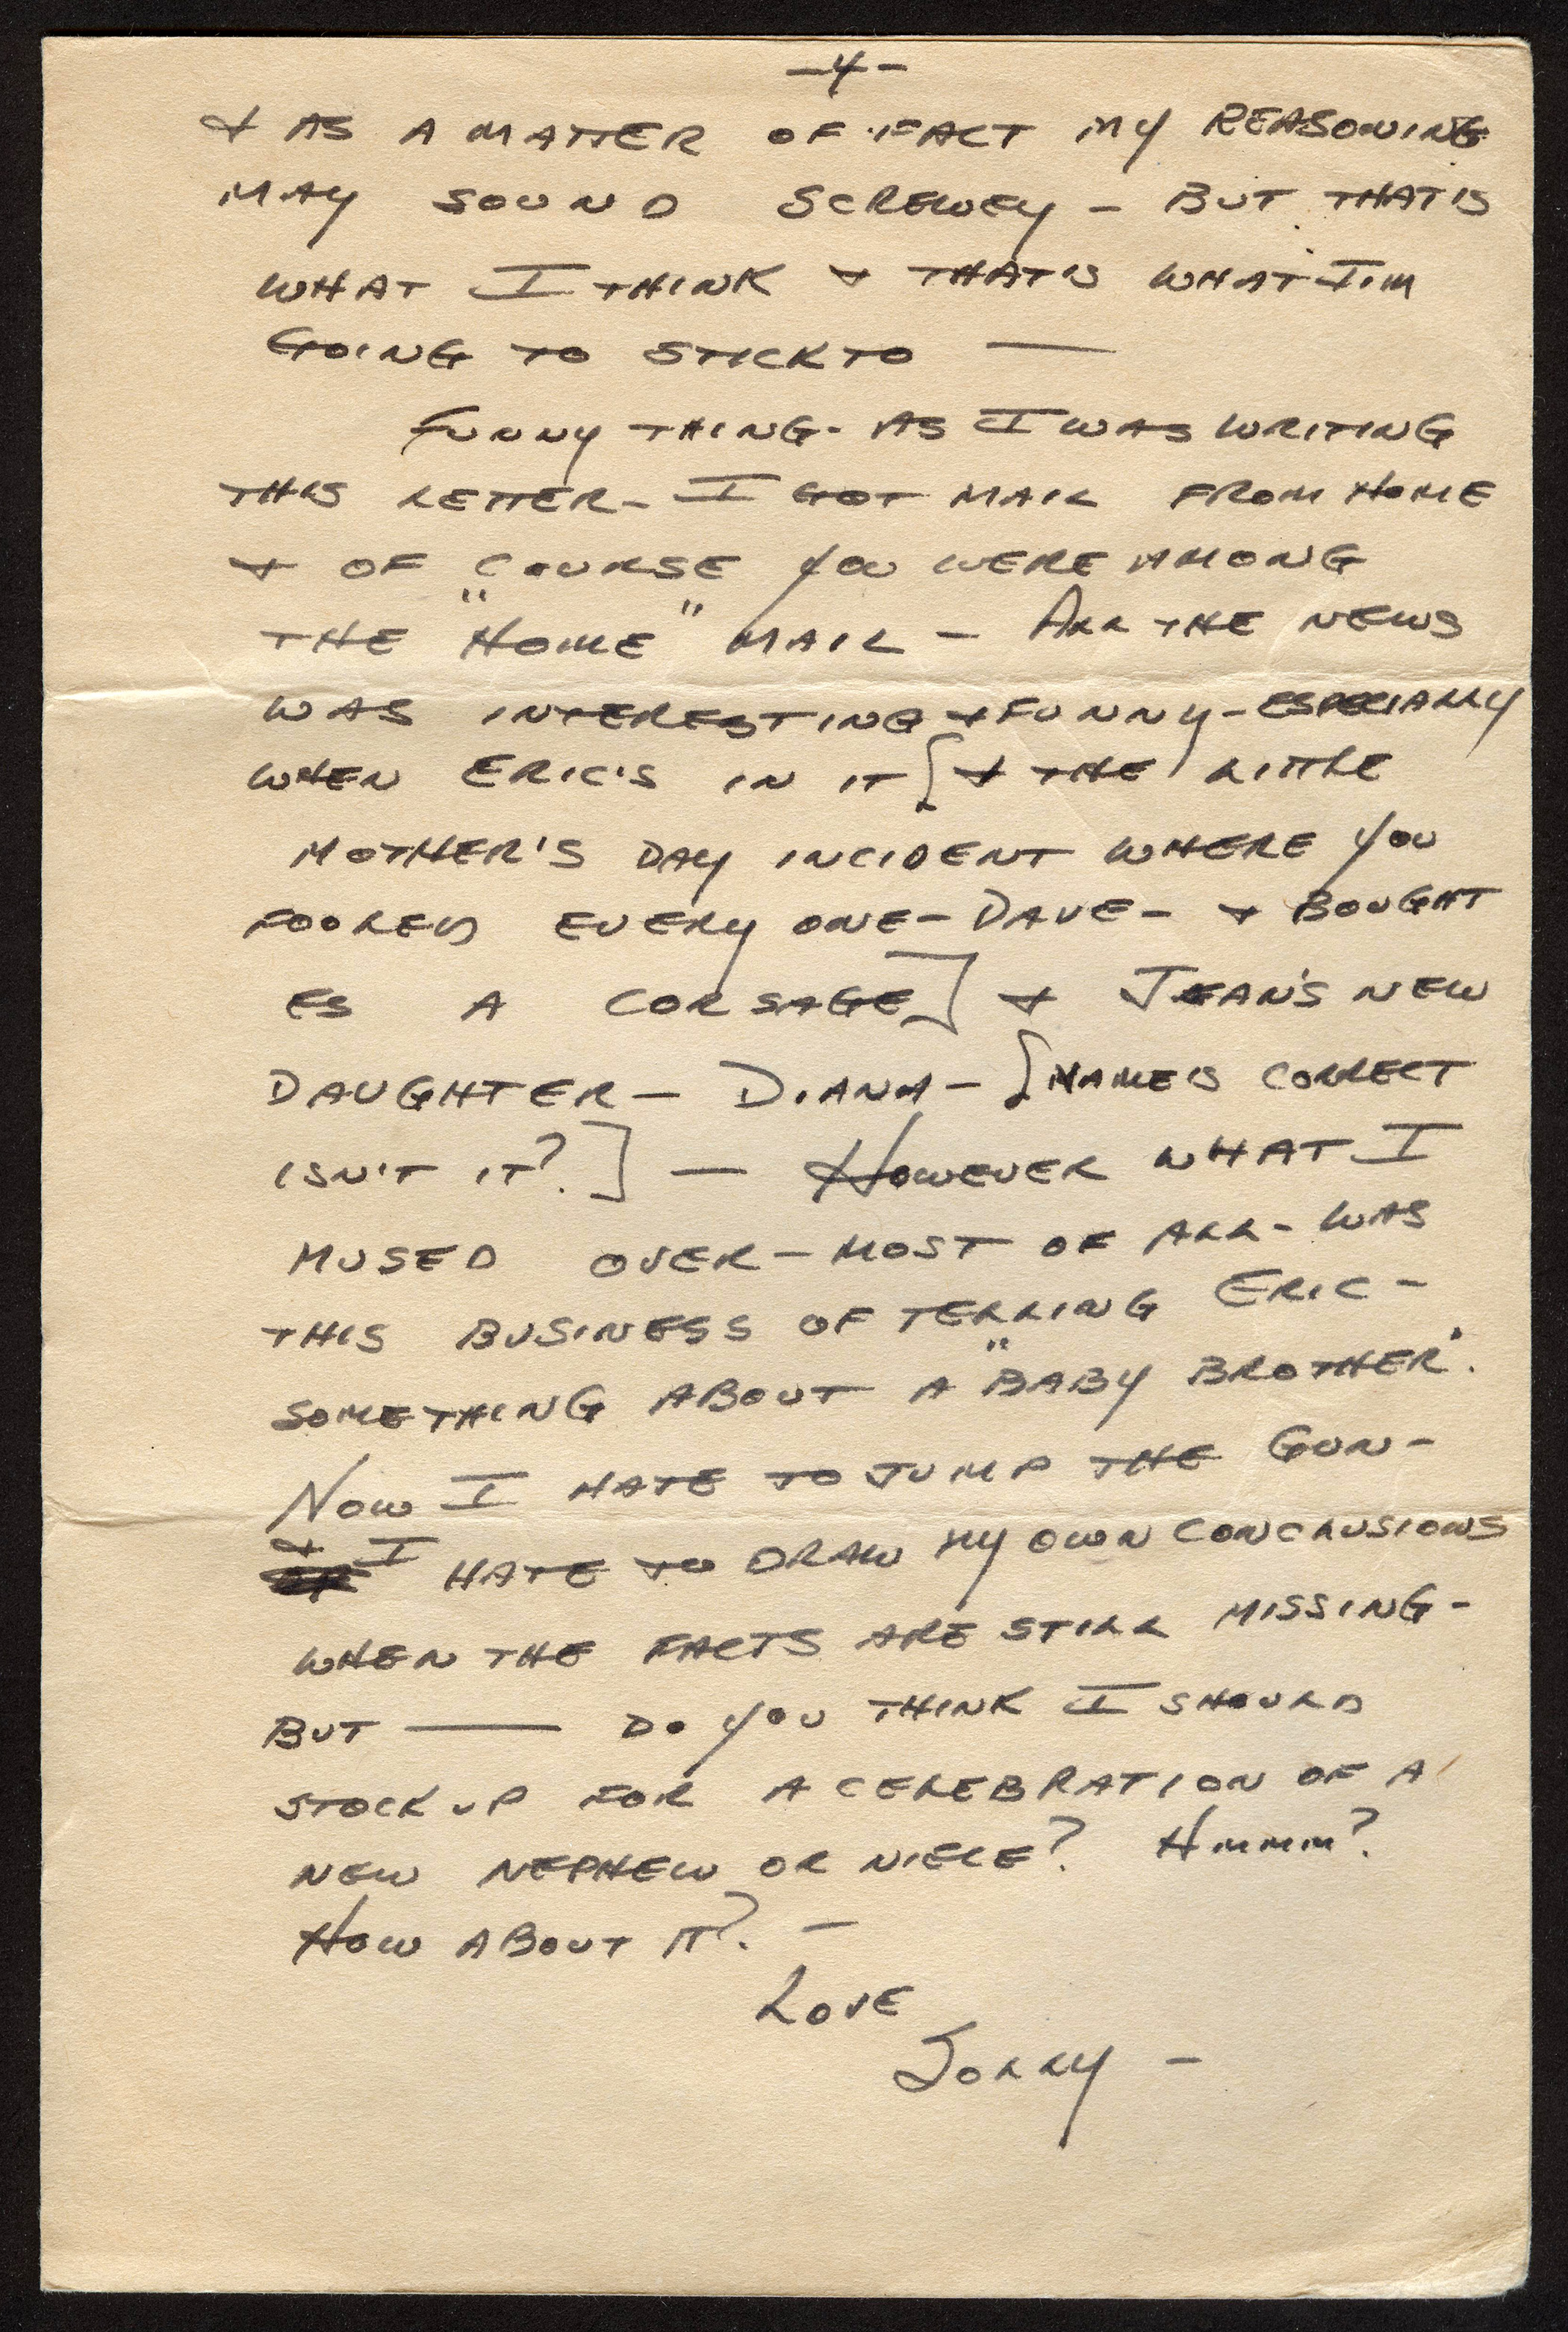 -4-
& AS A MATTER OF FACT MY REASONING
MAY SOUND SCREWEY - BUT THAT'S
WHAT I THINK & THAT'S WHAT I'M
GOING TO STICK TO —
FUNNY THING - AS I WAS WRITING
THIS LETTER - I GOT MAIL FROM HOME
& OF COURSE YOU WERE AMONG
THE "HOME" MAIL - ALL THE NEWS
WAS INTERESTING & FUNNY - ESPECIALLY
WHEN ERIC'S IN IT [& THE LITTLE
MOTHER'S DAY INCIDENT WHERE YOU
FOOLED EVERY ONE - DAVE - & BOUGHT
ES A CORSAGE] & JEAN'S NEW
DAUGHTER - DIANA - [NAME'S CORRECT
ISN'T IT?] — HOWEVER WHAT I
MUSED OVER - MOST OF ALL - WAS
THIS BUSINESS OF TELLING ERIC -
SOMETHING ABOUT A "BABY BROTHER".
NOW I HATE TO JUMP THE GUN -
& I HATE TO DRAW MY OWN CONCLUSIONS
WHEN THE FACTS ARE STILL MISSING -
BUT — DO YOU THINK I SHOULD
STOCK UP FOR A CELEBRATION OF A
NEW NEPHEW OR NIECE? HMMMM?
HOW ABOUT IT? —
LOVE
JOLLY -